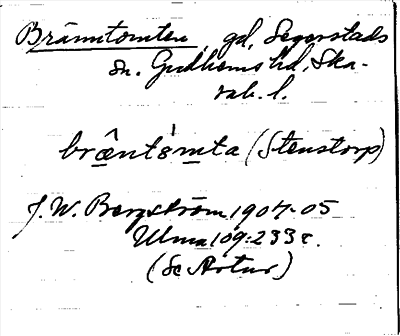 Bränntomten, gd, Segerstads
sn. Gudhems hd, Ska-
rab. l.
bræ̂ntòmta (Stenstorp)
J. W. Bergström 1904-05
Ulma 109:233 c.
(Se Artur)